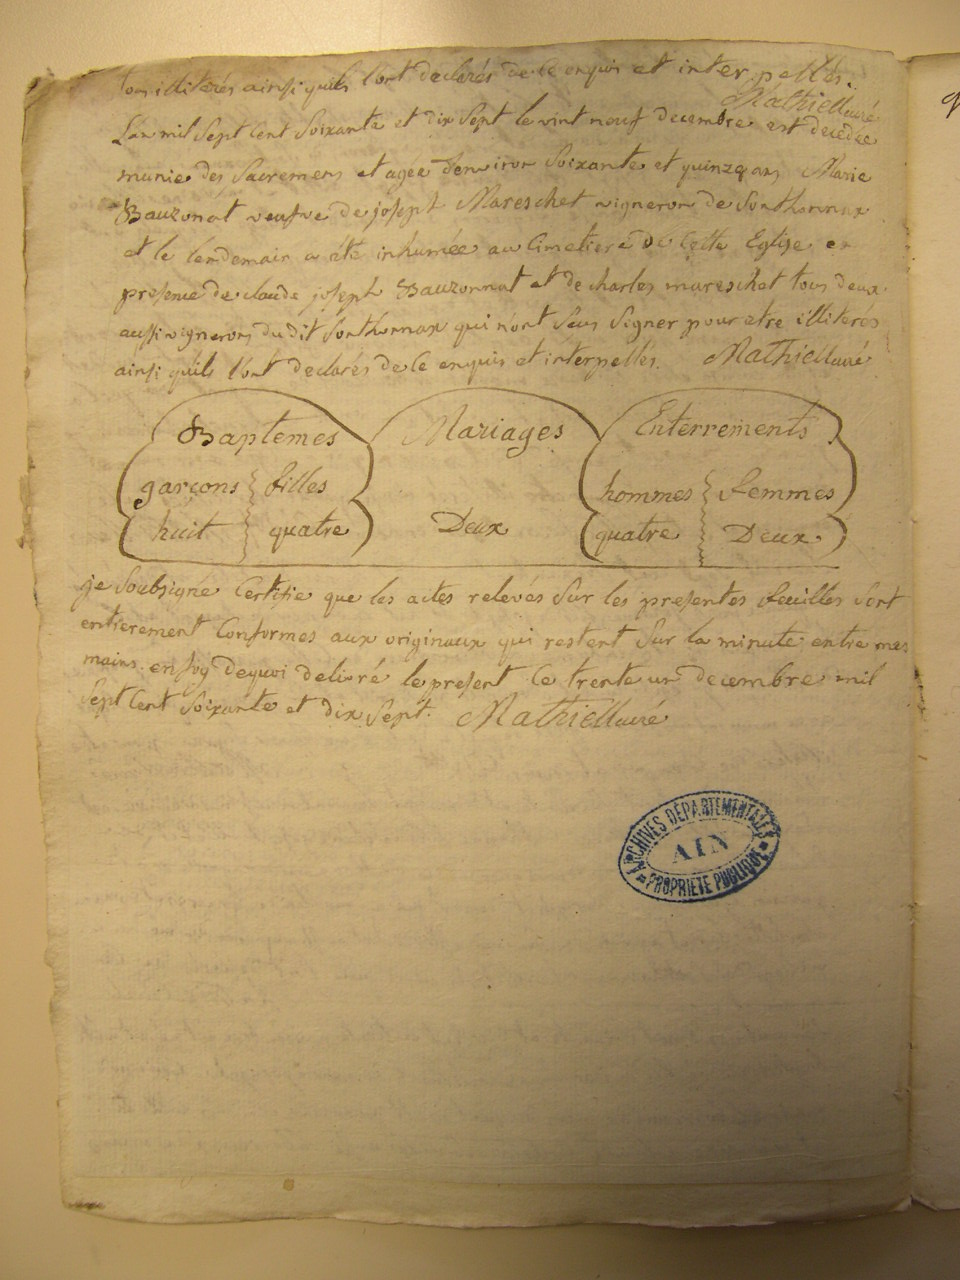 Tous illiterés ainsi quils l'ont declarés de ce enquis et interpellés.
Mathieu curé
L'an mil sept cent soixante et dix sept le vint neuf decembre est decedée
munie des sacremens et agée d'environ soixante et quinze ans Marie
Bauzonat veufve de joseph Mareschet vigneron de Sonthonnax
et le lendemain a été inhumée au Cimetiere de Cette Eglise en
presence de claude joseph Bauzonnat et de charles mareschet tous deux
aussi vignerons du dit Sonthonnax qui n'ont seus signer pour etre illiterés
ainsi quils l'ont declarés de ce enquis et interpellés. Mathieu curé
Baptemes Mariages Enterrements
garçons filles hommes femmes
huit quatre Deux quatre Deux
je soubsigné Certifie que les actes relevés sur les presentes feuilles sont
entierement Conformes aux originaux qui restent sur la minute entre mes
mains. en foy dequoi delivré le present Ce trente un decembre mil
sept Cent soixante et dix sept. Mathieu curé
ARCHIVES DÉPARTEMENTALES
AIN
PROPRIETE PUBLIQUE